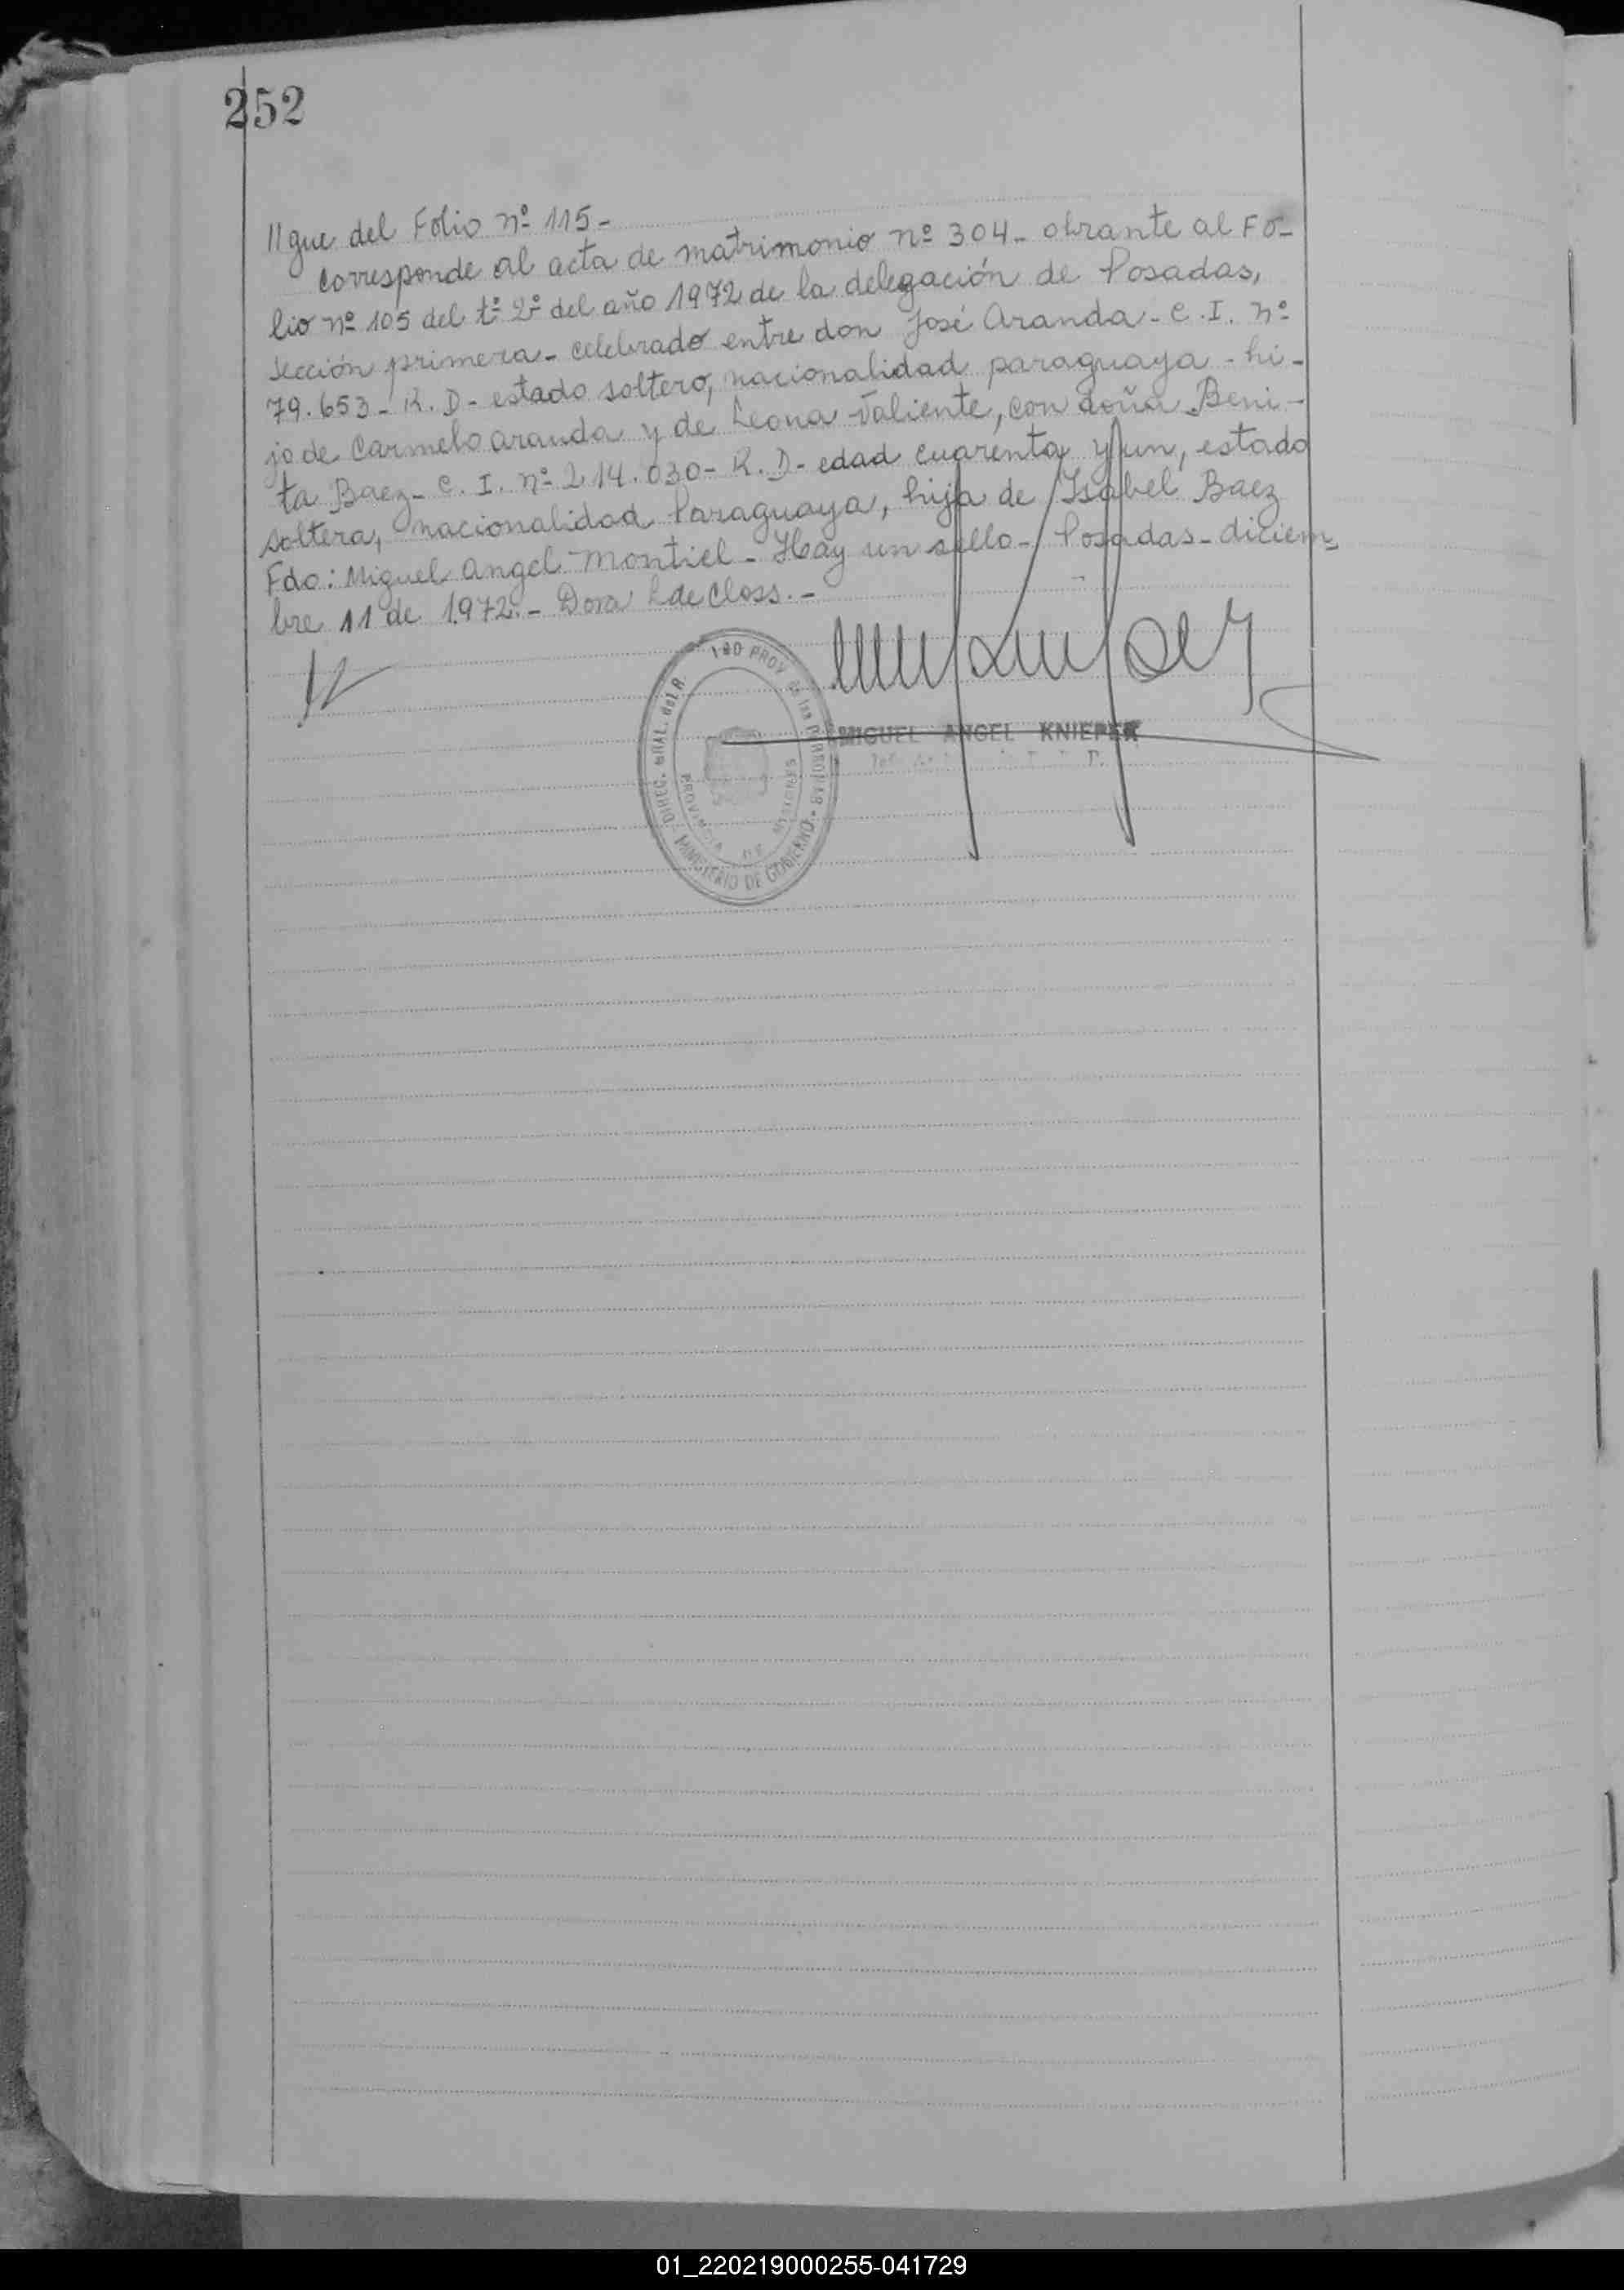 252
//gue del Folio nº 115-
Corresponde al acta de matrimonio nº 304- obrante al Fo-
lio nº 105 del tº 2º del año 1972 de la delegación de Posadas,
sección primera- celebrado entre don José Aranda- C. I. nº
79.653- K. D- estado soltero, nacionalidad paraguaya - hi-
jo de Carmelo Aranda y de Leona Valiente, con doña Beni-
ta Baez- C. I. nº 214.030- K. D- edad cuarenta y un, estado
soltera, nacionalidad Paraguaya, hija de Isabel Baez
Fdo: Miguel Angel Montiel- Hay un sello- Posadas- diciem-
bre 11 de 1.972.- Dora L de Closs.-
DIREC. GRAL. del R. PROV. de las PERSONAS
MINISTERIO DE GOBIERNO.-
PROVINCIA DE MISIONES
MIGUEL ANGEL KNIEPER
01_220219000255-041729